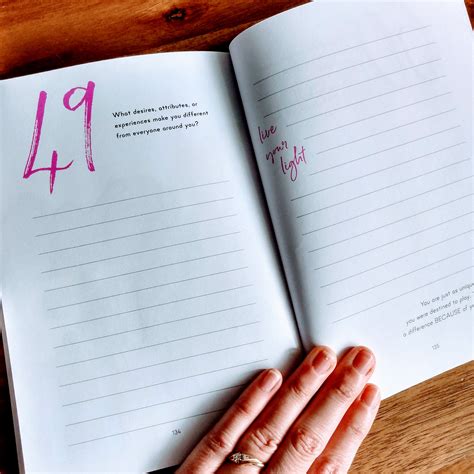 49
What desires, attributes, or
experiences make you different
from everyone around you?
134
live
your
light
You are just as unique
you were destined to play.
a difference BECAUSE of
135